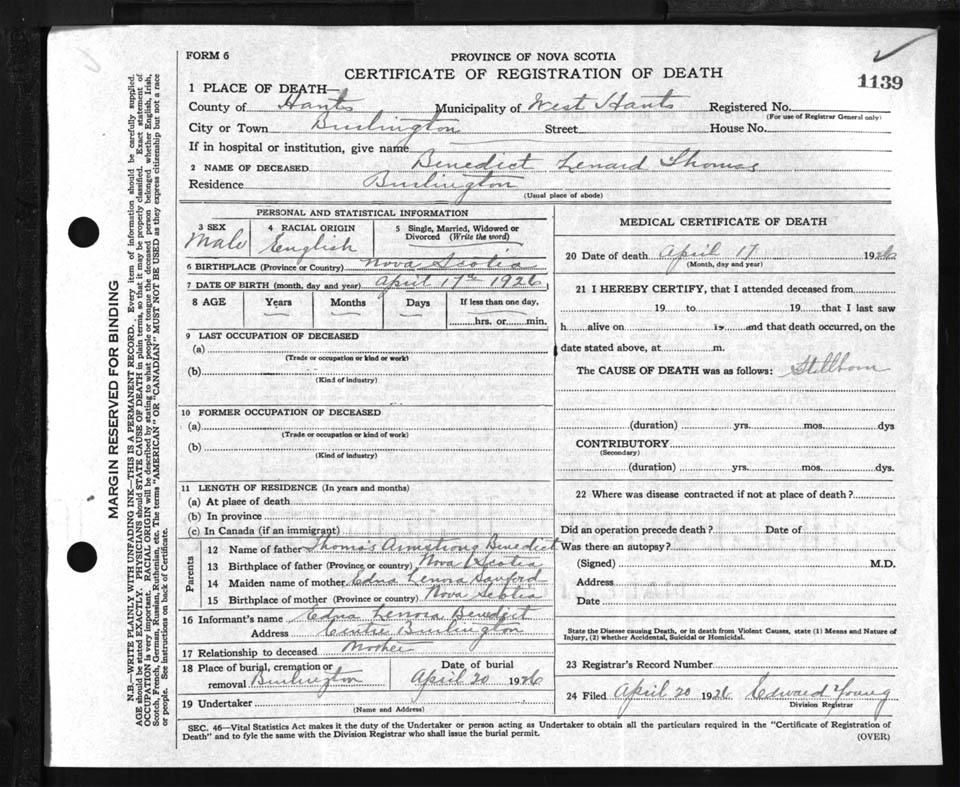 FORM 6
PROVINCE OF NOVA SCOTIA
CERTIFICATE OF REGISTRATION OF DEATH
1139
1 PLACE OF DEATH—
County of Hants Municipality of West Hants Registered No.
(For use of Registrar General only)
City or Town Burlington Street House No.
If in hospital or institution, give name
2 NAME OF DECEASED Benedict Lenard Thomas
Residence Burlington
(Usual place of abode)
PERSONAL AND STATISTICAL INFORMATION
3 SEX 4 RACIAL ORIGIN 5 Single, Married, Widowed or
Divorced (Write the word)
Male English
6 BIRTHPLACE (Province or Country) Nova Scotia
7 DATE OF BIRTH (month, day and year) April 17th 1926
8 AGE Years Months Days If less than one day,
hrs. or min.
9 LAST OCCUPATION OF DECEASED
(a)
(Trade or occupation or kind or work)
(b)
(Kind of industry)
10 FORMER OCCUPATION OF DECEASED
(a)
(Trade or occupation or kind of work)
(b)
(Kind of industry)
11 LENGTH OF RESIDENCE (In years and months)
(a) At place of death
(b) In province
(c) In Canada (if an immigrant)
Parents
12 Name of father Thomas Armstrong Benedict
13 Birthplace of father (Province or country) Nova Scotia
14 Maiden name of mother Edna Lenora Sanford
15 Birthplace of mother (Province or country) Nova Scotia
16 Informant's name Edna Lenora Benedict
Address Centre Burlington
17 Relationship to deceased Mother
18 Place of burial, cremation or Date of burial
removal Burlington April 20 1926
19 Undertaker
(Name and Address)
MEDICAL CERTIFICATE OF DEATH
20 Date of death April 17 1926
(Month, day and year)
21 I HEREBY CERTIFY, that I attended deceased from
19 to 19 that I last saw
h alive on 19 and that death occurred, on the
date stated above, at m.
The CAUSE OF DEATH was as follows: Stillborn
(duration) yrs. mos. dys
CONTRIBUTORY
(Secondary)
(duration) yrs. mos. dys.
22 Where was disease contracted if not at place of death?
Did an operation precede death? Date of
Was there an autopsy?
(Signed) M.D.
Address
Date
State the Disease causing Death, or in death from Violent Causes, state (1) Means and Nature of
Injury, (2) whether Accidental, Suicidal or Homicidal.
23 Registrar's Record Number
24 Filed April 20 1926 Edward Young
Division Registrar
SEC. 46—Vital Statistics Act makes it the duty of the Undertaker or person acting as Undertaker to obtain all the particulars required in the "Certificate of Registration of
Death" and to fyle the same with the Division Registrar who shall issue the burial permit.
(OVER)
MARGIN RESERVED FOR BINDING
N.B.—WRITE PLAINLY WITH UNFADING INK.—THIS IS A PERMANENT RECORD. Every item of information should be carefully supplied.
AGE should be stated EXACTLY. PHYSICIANS should STATE CAUSE OF DEATH in plain terms, so that it may be properly classified. Exact statement of
OCCUPATION is very important. RACIAL ORIGIN will be described by stating to what people or tongue the deceased person belonged whether English, Irish,
Scotch, French, German, Russian, Ruthenian, etc. The terms "AMERICAN" OR "CANADIAN" MUST NOT BE USED as they express citizenship but not a race
or people. See instructions on back of Certificate.